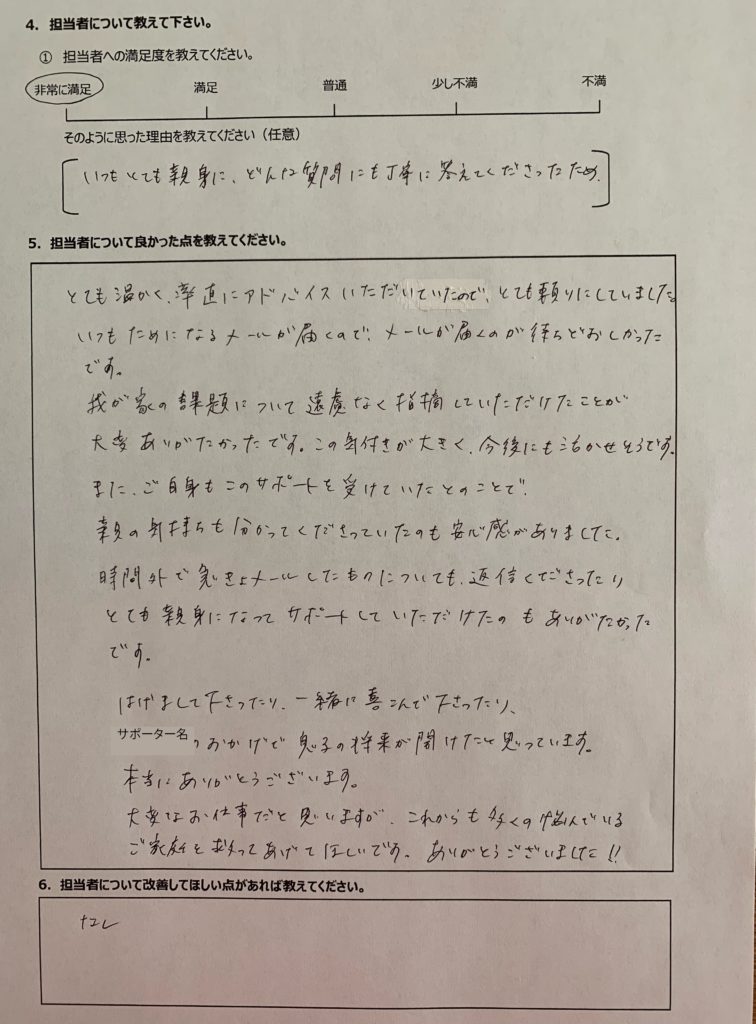 4. 担当者について教えて下さい。
① 担当者への満足度を教えてください。
非常に満足 満足 普通 少し不満 不満
そのように思った理由を教えてください（任意）
いつもとても親身に、どんな質問にも丁寧に答えてくださったため。
5. 担当者について良かった点を教えてください。
とても温かく、率直にアドバイスいただいていたので、とても頼りにしていました。
いつもためになるメールが届くので、メールが届くのが待ちどおしかった
です。
我が家の課題について遠慮なく指摘していただけたことが
大変ありがたかったです。この気付きが大きく、今後にも活かせそうです。
また、ご自身もこのサポートを受けていたとのことで、
親の気持ちも分かってくださっていたのも安心感がありました。
時間外で急きょメールしたものについても、返信くださったり
とても親身になってサポートしていただけたのもありがたかった
です。
はげまして下さったり、一緒に喜こんで下さったり、
サポーター名のおかげで息子の将来が開けたと思っています。
本当にありがとうございます。
大変なお仕事だと思いますが、これからも多くの悩んでいる
ご家庭を救ってあげてほしいです。ありがとうございました!!
6. 担当者について改善してほしい点があれば教えてください。
なし